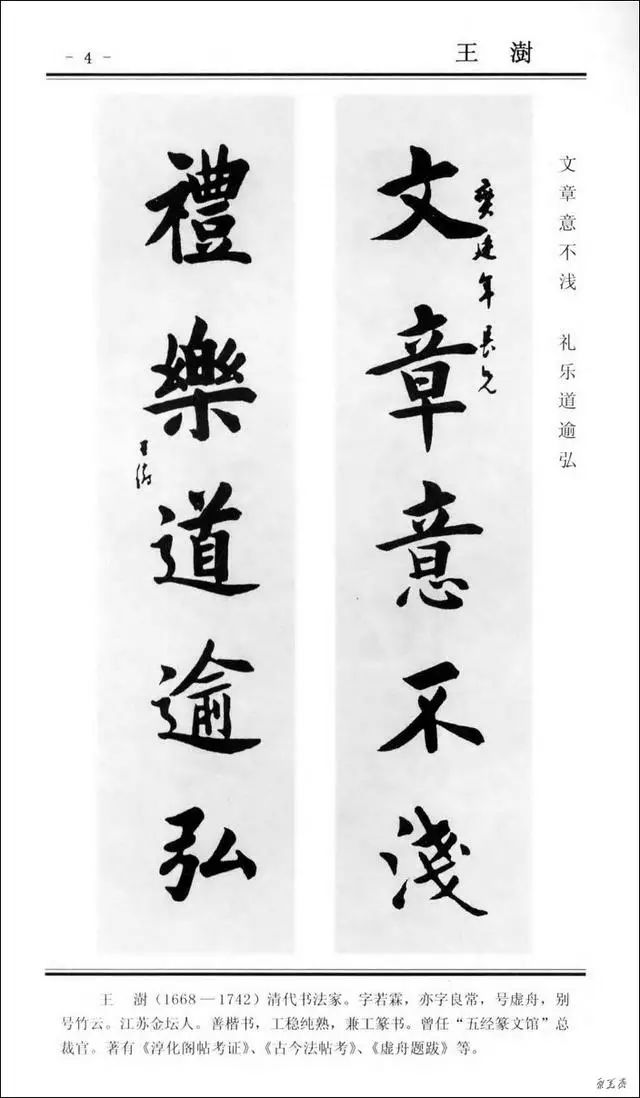 - 4 -
王 澍
文章意不浅 礼乐道逾弘
文章意不淺
年長兄
禮樂道逾弘
王澍
王 澍(1668—1742)清代书法家。字若霖,亦字良常,号虚舟,别
号竹云。江苏金坛人。善楷书,工稳纯熟,兼工篆书。曾任“五经篆文馆”总
裁官。著有《淳化阁帖考证》、《古今法帖考》、《虚舟题跋》等。